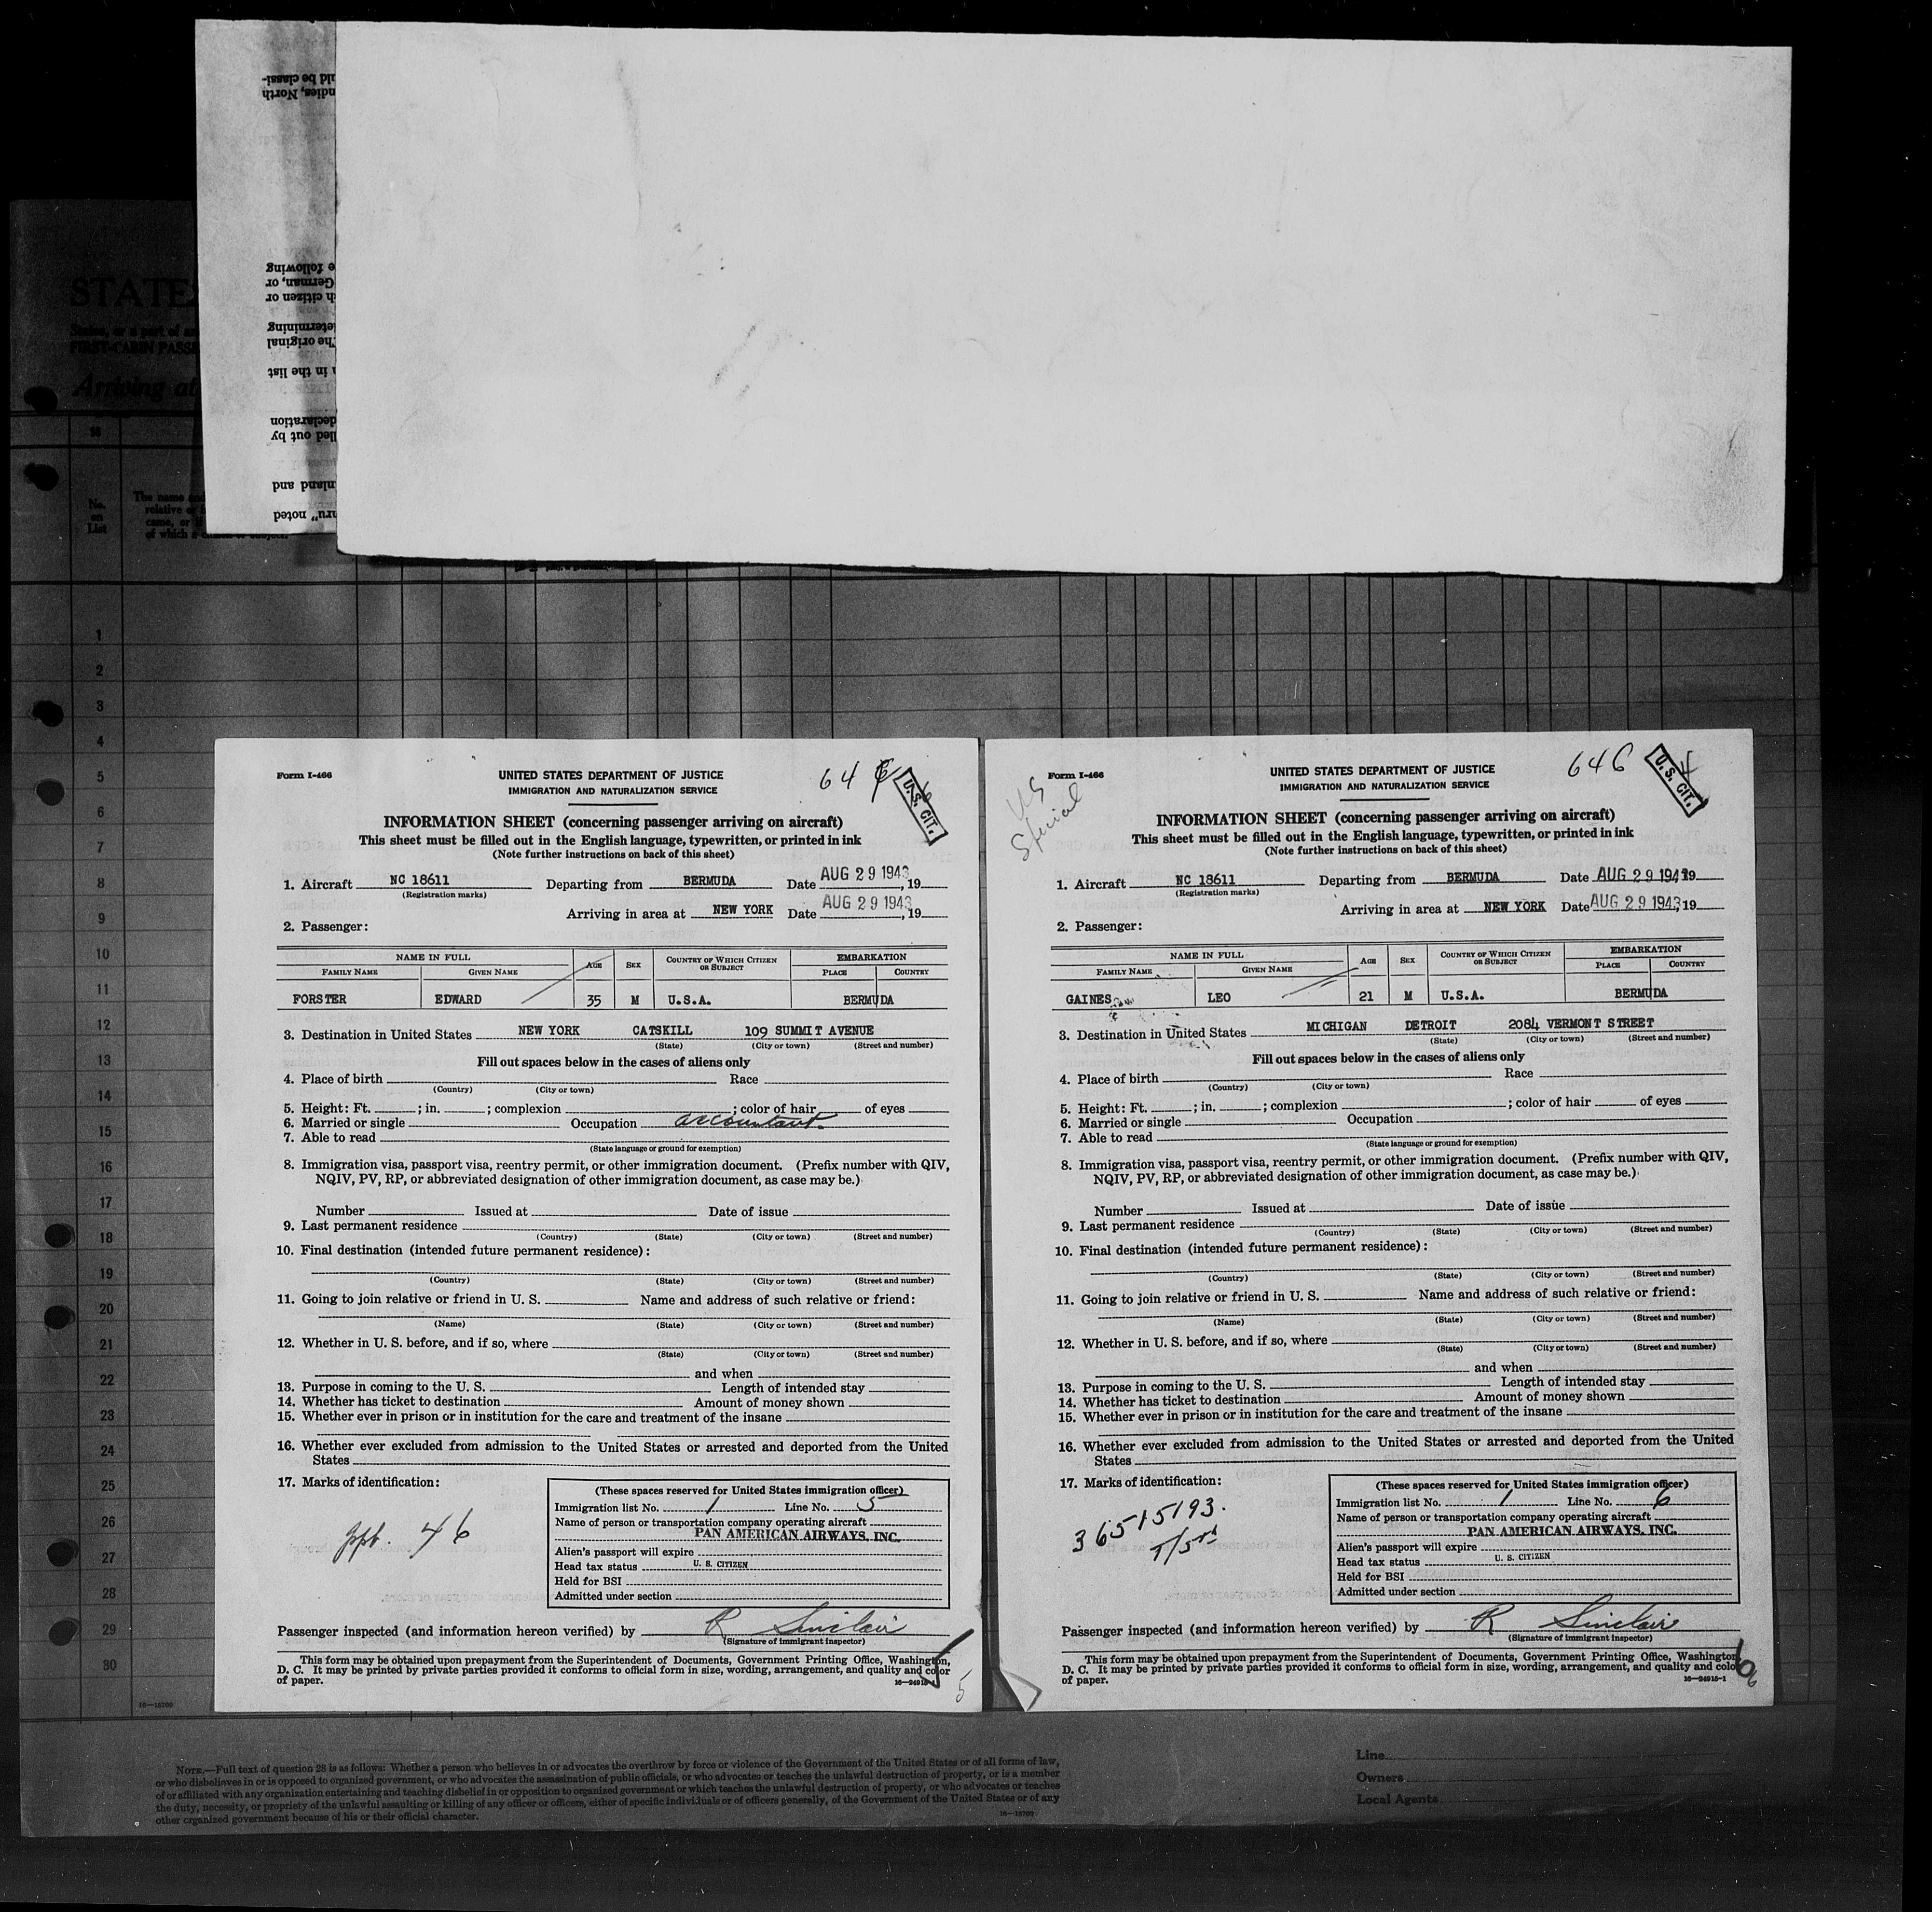 STATE
States, or a part of an
FIRST-CABIN PASS
Arriving at
No.
on
List
The name and
relative or
came, or if
of which a
uld be classi-
ndies, North
e following
German, or
h citizen or
letermining
The original
n in the list
declaration
lled out by
nland and
ru" noted
1
2
3
4
5
6
7
8
9
10
11
12
13
14
15
16
17
18
19
20
21
22
23
24
25
26
27
28
29
30
16—15700
Form I-466
UNITED STATES DEPARTMENT OF JUSTICE
IMMIGRATION AND NATURALIZATION SERVICE
64
U. S. CIT.
INFORMATION SHEET (concerning passenger arriving on aircraft)
This sheet must be filled out in the English language, typewritten, or printed in ink
(Note further instructions on back of this sheet)
1. Aircraft NC 18611 Departing from BERMUDA Date AUG 29 1943, 19
(Registration marks)
Arriving in area at NEW YORK Date AUG 29 1943, 19
2. Passenger:
NAME IN FULL AGE SEX COUNTRY OF WHICH CITIZEN OR SUBJECT EMBARKATION
FAMILY NAME GIVEN NAME PLACE COUNTRY
FORSTER EDWARD 35 M U.S.A. BERMUDA
3. Destination in United States NEW YORK CATSKILL 109 SUMMIT AVENUE
(State) (City or town) (Street and number)
Fill out spaces below in the cases of aliens only
4. Place of birth Race
(Country) (City or town)
5. Height: Ft. ; in. ; complexion ; color of hair of eyes
6. Married or single Occupation accountant.
7. Able to read
(State language or ground for exemption)
8. Immigration visa, passport visa, reentry permit, or other immigration document. (Prefix number with QIV,
NQIV, PV, RP, or abbreviated designation of other immigration document, as case may be.)
Number Issued at Date of issue
9. Last permanent residence
(Country) (State) (City or town) (Street and number)
10. Final destination (intended future permanent residence):
(Country) (State) (City or town) (Street and number)
11. Going to join relative or friend in U. S. Name and address of such relative or friend:
(Name) (State) (City or town) (Street and number)
12. Whether in U. S. before, and if so, where
(State) (City or town) (Street and number)
and when
13. Purpose in coming to the U. S. Length of intended stay
14. Whether has ticket to destination Amount of money shown
15. Whether ever in prison or in institution for the care and treatment of the insane
16. Whether ever excluded from admission to the United States or arrested and deported from the United
States
17. Marks of identification:
ppt. 46
(These spaces reserved for United States immigration officer)
Immigration list No. 1 Line No. 5
Name of person or transportation company operating aircraft
PAN AMERICAN AIRWAYS, INC.
Alien's passport will expire
Head tax status U. S. CITIZEN
Held for BSI
Admitted under section
Passenger inspected (and information hereon verified) by R Sinclair
(Signature of immigrant inspector)
This form may be obtained upon prepayment from the Superintendent of Documents, Government Printing Office, Washington,
D. C. It may be printed by private parties provided it conforms to official form in size, wording, arrangement, and quality and color
of paper.
16—24915-1
5
5
Form I-466
UNITED STATES DEPARTMENT OF JUSTICE
IMMIGRATION AND NATURALIZATION SERVICE
646
U. S. CIT.
4
US
Special
INFORMATION SHEET (concerning passenger arriving on aircraft)
This sheet must be filled out in the English language, typewritten, or printed in ink
(Note further instructions on back of this sheet)
1. Aircraft NC 18611 Departing from BERMUDA Date AUG 29 1943 19
(Registration marks)
Arriving in area at NEW YORK Date AUG 29 1943, 19
2. Passenger:
NAME IN FULL AGE SEX COUNTRY OF WHICH CITIZEN OR SUBJECT EMBARKATION
FAMILY NAME GIVEN NAME PLACE COUNTRY
GAINES LEO 21 M U.S.A. BERMUDA
3. Destination in United States MICHIGAN DETROIT 2084 VERMONT STREET
(State) (City or town) (Street and number)
Fill out spaces below in the cases of aliens only
4. Place of birth Race
(Country) (City or town)
5. Height: Ft. ; in. ; complexion ; color of hair of eyes
6. Married or single Occupation
7. Able to read
(State language or ground for exemption)
8. Immigration visa, passport visa, reentry permit, or other immigration document. (Prefix number with QIV,
NQIV, PV, RP, or abbreviated designation of other immigration document, as case may be.)
Number Issued at Date of issue
9. Last permanent residence
(Country) (State) (City or town) (Street and number)
10. Final destination (intended future permanent residence):
(Country) (State) (City or town) (Street and number)
11. Going to join relative or friend in U. S. Name and address of such relative or friend:
(Name) (State) (City or town) (Street and number)
12. Whether in U. S. before, and if so, where
(State) (City or town) (Street and number)
and when
13. Purpose in coming to the U. S. Length of intended stay
14. Whether has ticket to destination Amount of money shown
15. Whether ever in prison or in institution for the care and treatment of the insane
16. Whether ever excluded from admission to the United States or arrested and deported from the United
States
17. Marks of identification:
36515193.
T/5th
(These spaces reserved for United States immigration officer)
Immigration list No. 1 Line No. 6
Name of person or transportation company operating aircraft
PAN AMERICAN AIRWAYS, INC.
Alien's passport will expire
Head tax status U. S. CITIZEN
Held for BSI
Admitted under section
Passenger inspected (and information hereon verified) by R Sinclair
(Signature of immigrant inspector)
This form may be obtained upon prepayment from the Superintendent of Documents, Government Printing Office, Washington
D. C. It may be printed by private parties provided it conforms to official form in size, wording, arrangement, and quality and colo
of paper.
16—24915-1
6
6
NOTE.—Full text of question 28 is as follows: Whether a person who believes in or advocates the overthrow by force or violence of the Government of the United States or of all forms of law,
or who disbelieves in or is opposed to organized government, or who advocates the assassination of public officials, or who advocates or teaches the unlawful destruction of property, or is a member
of or affiliated with any organization entertaining and teaching disbelief in or opposition to organized government or which teaches the unlawful destruction of property, or who advocates or teaches
the duty, necessity, or propriety of the unlawful assaulting or killing of any officer or officers, either of specific individuals or of officers generally, of the Government of the United States or of any
other organized government because of his or their official character.
16—15700
Line
Owners
Local Agents